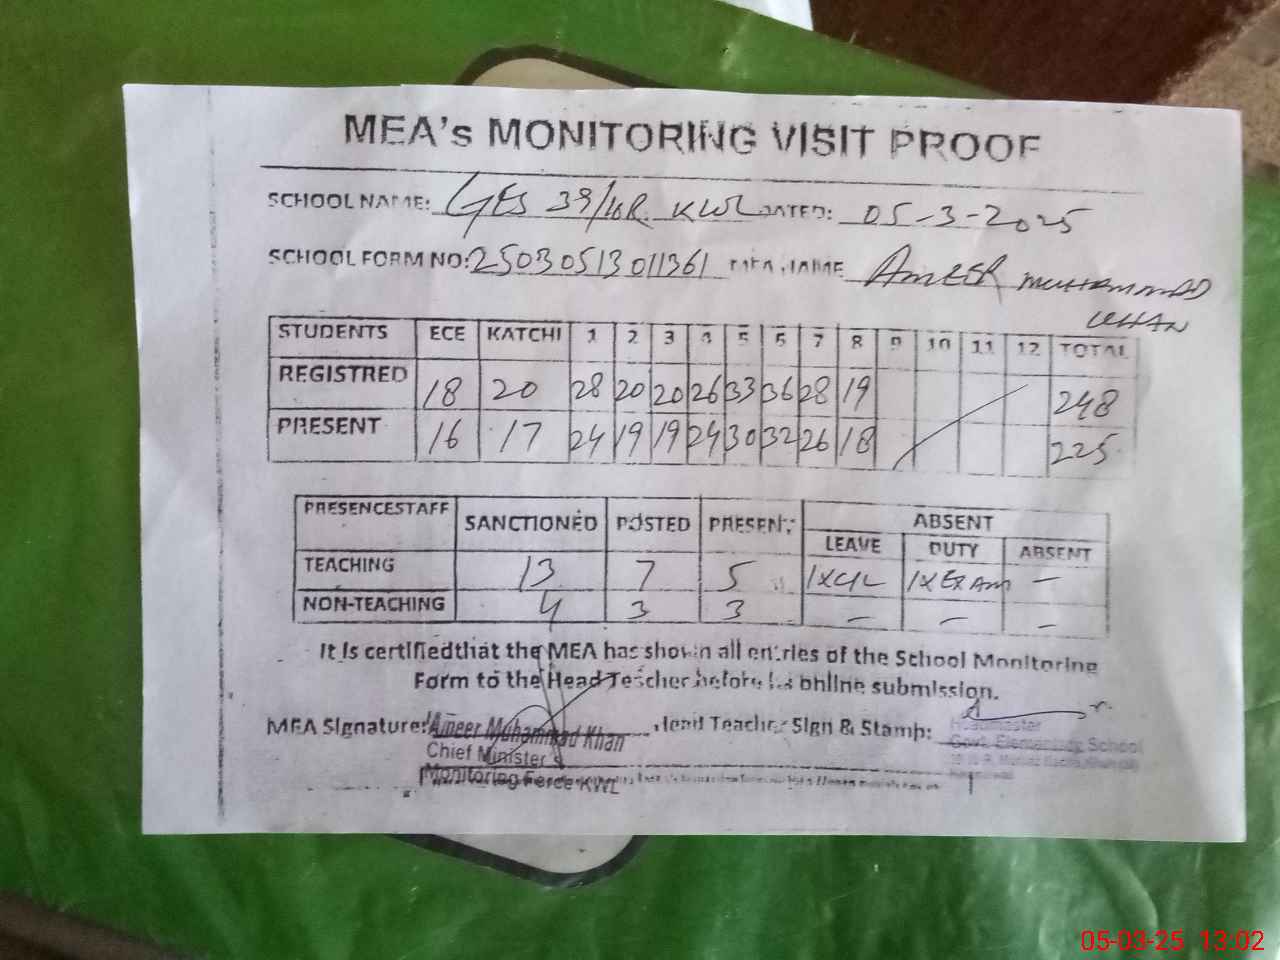 MEA's MONITORING VISIT PROOF
SCHOOL NAME: GES 39/10R. KWL DATED: 05-3-2025
SCHOOL FORM NO: 25030513011361 MEA NAME AMEER MUHAMMAD
KHAN
STUDENTS ECE KATCHI 1 2 3 4 5 6 7 8 9 10 11 12 TOTAL
REGISTRED 18 20 28 20 20 26 33 36 28 19 248
PRESENT 16 17 24 19 19 24 30 32 26 18 225
PRESENCESTAFF SANCTIONED POSTED PRESENT ABSENT
LEAVE DUTY ABSENT
TEACHING 13 7 5 1XC/L 1XEXAM -
NON-TEACHING 4 3 3 - - -
It is certifiedthat the MEA has shown all entries of the School Monitoring
Form to the Head Teacher before online submission.
MEA Signature: Ameer Muhammad Khan Head Teacher Sign & Stamp:
Chief Minister's
Monitoring Force KWL
Headmaster
Govt. Elementary School
05-03-25 13:02